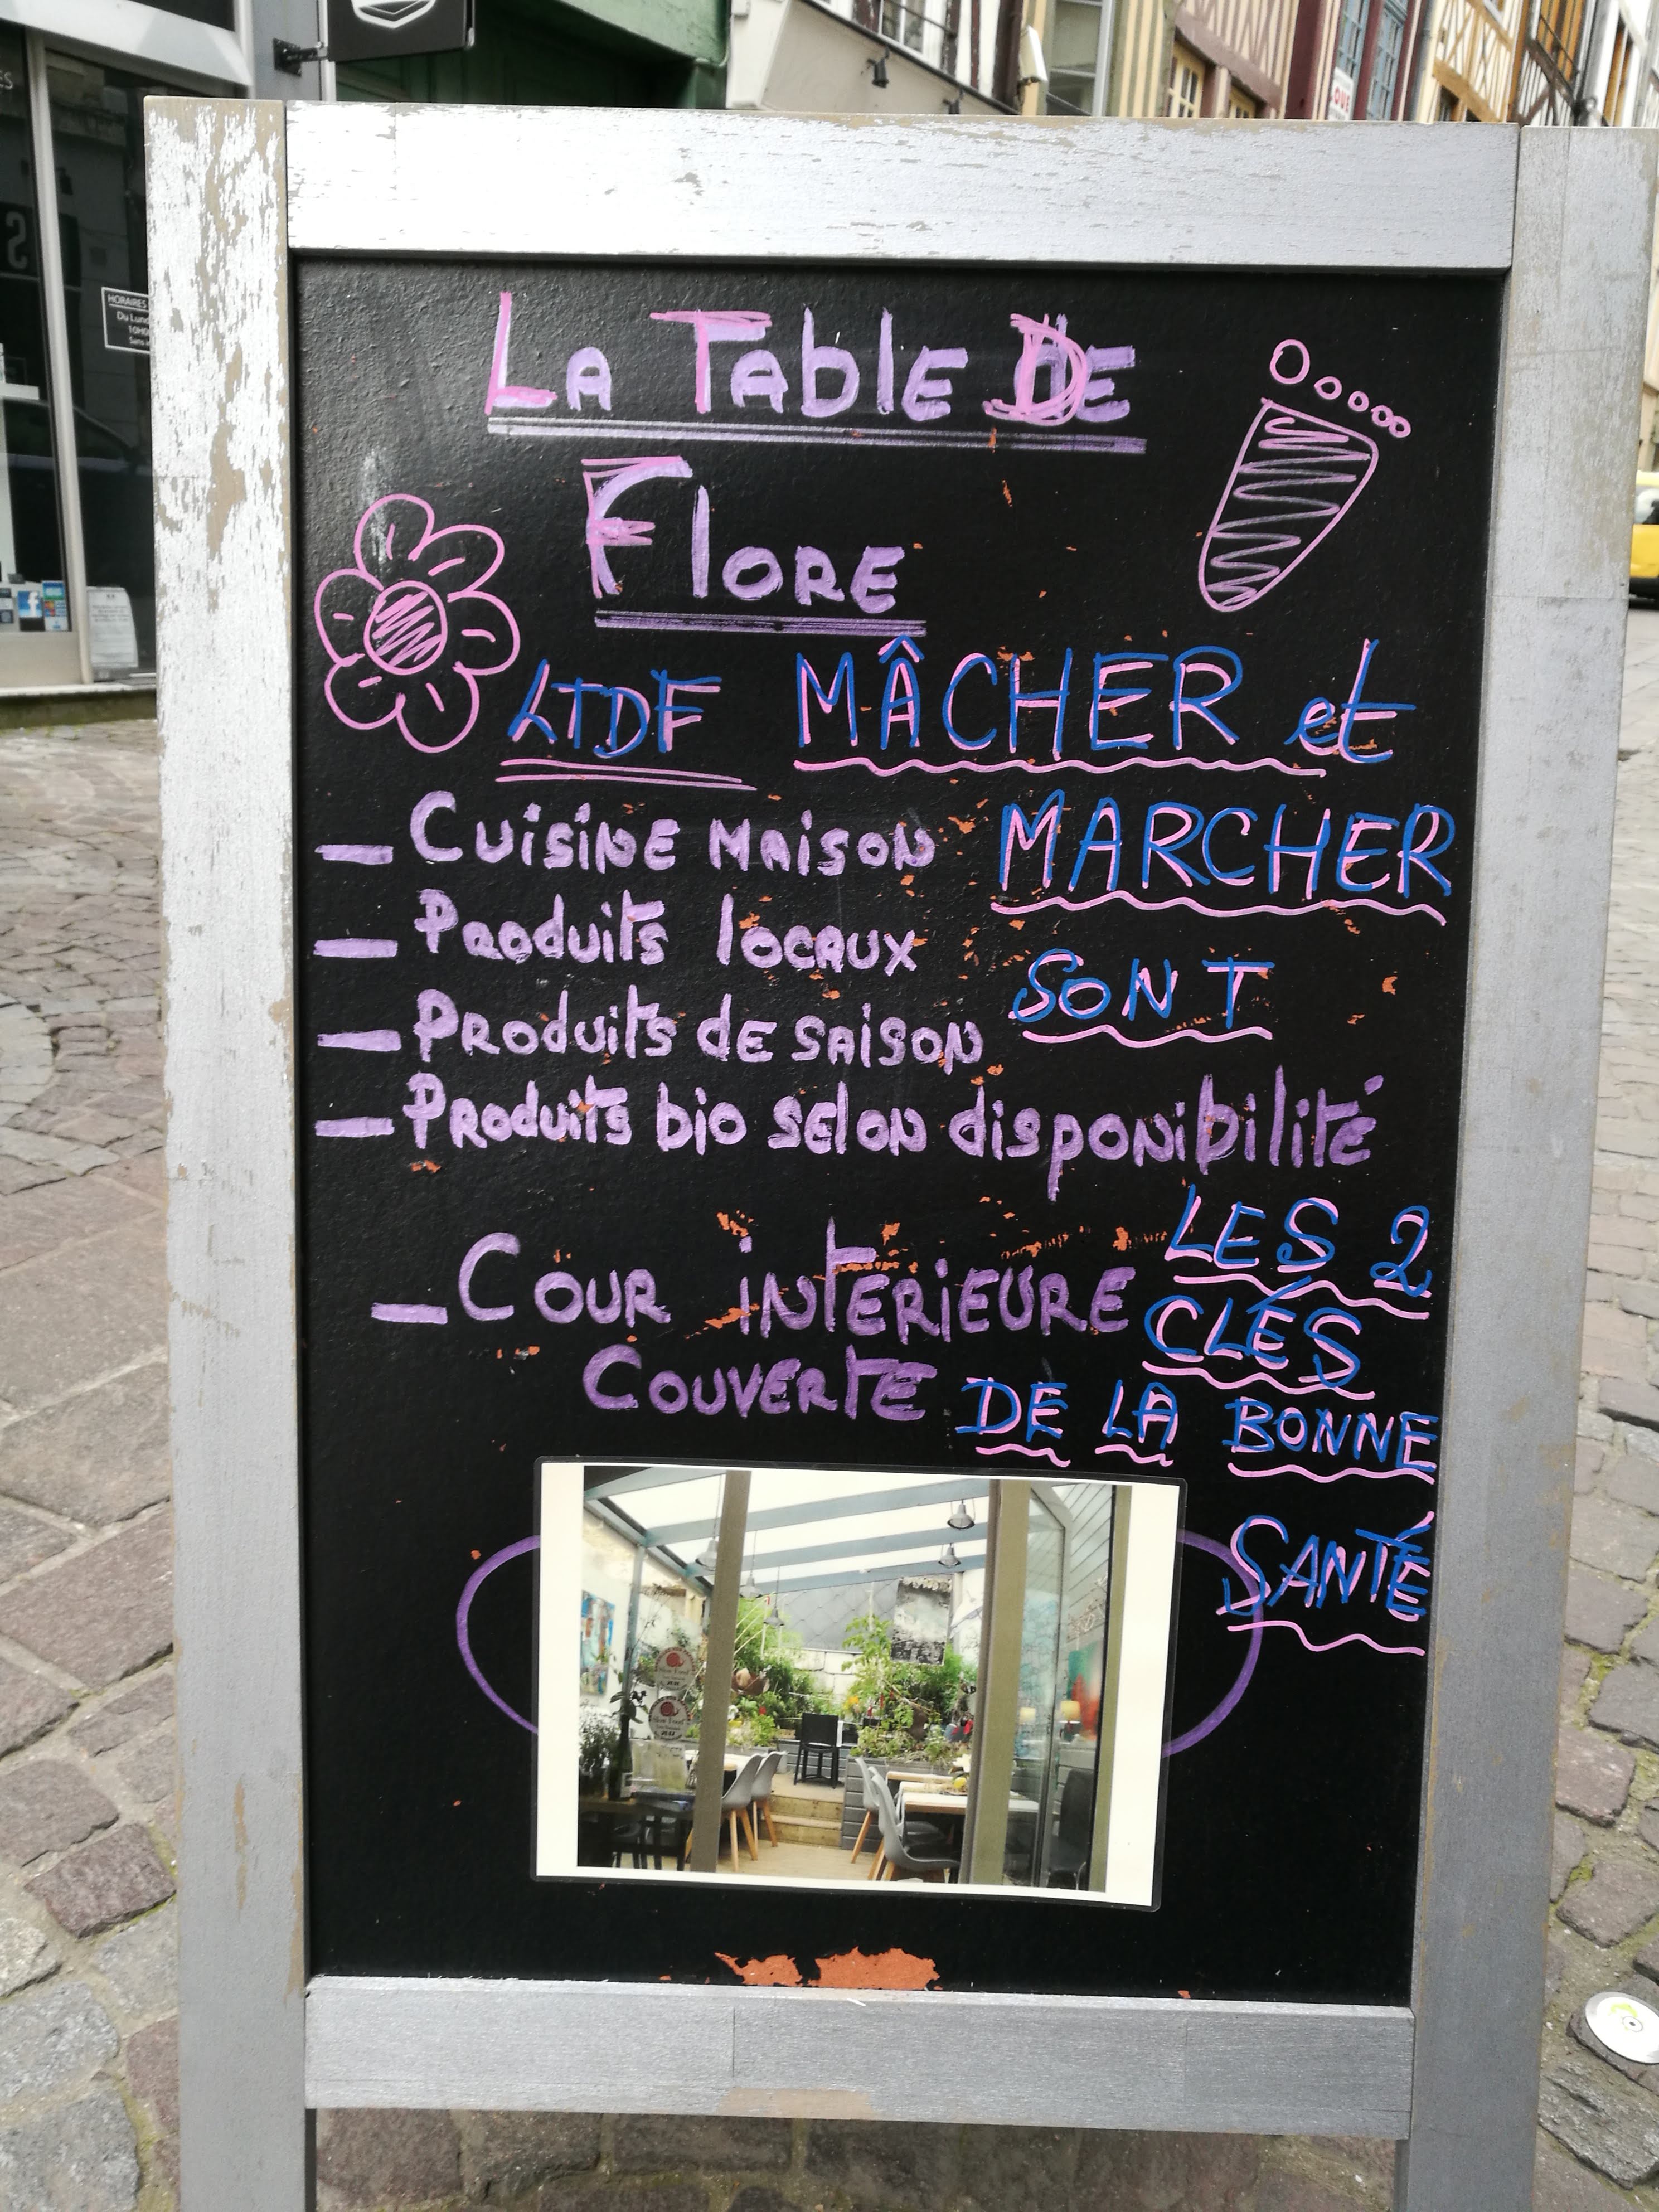 La Table De
Flore
LTDF MÂCHER et
MARCHER
SONT
— Cuisine Maison
— Produits locaux
— Produits de saison
— Produits bio selon disponibilité
LES 2
CLÉS
— Cour interieure
Couverte
DE LA BONNE
SANTÉ
Slow Food
Slow Food
HORAIRES
Du Lund
10H0
Sans
LOUE